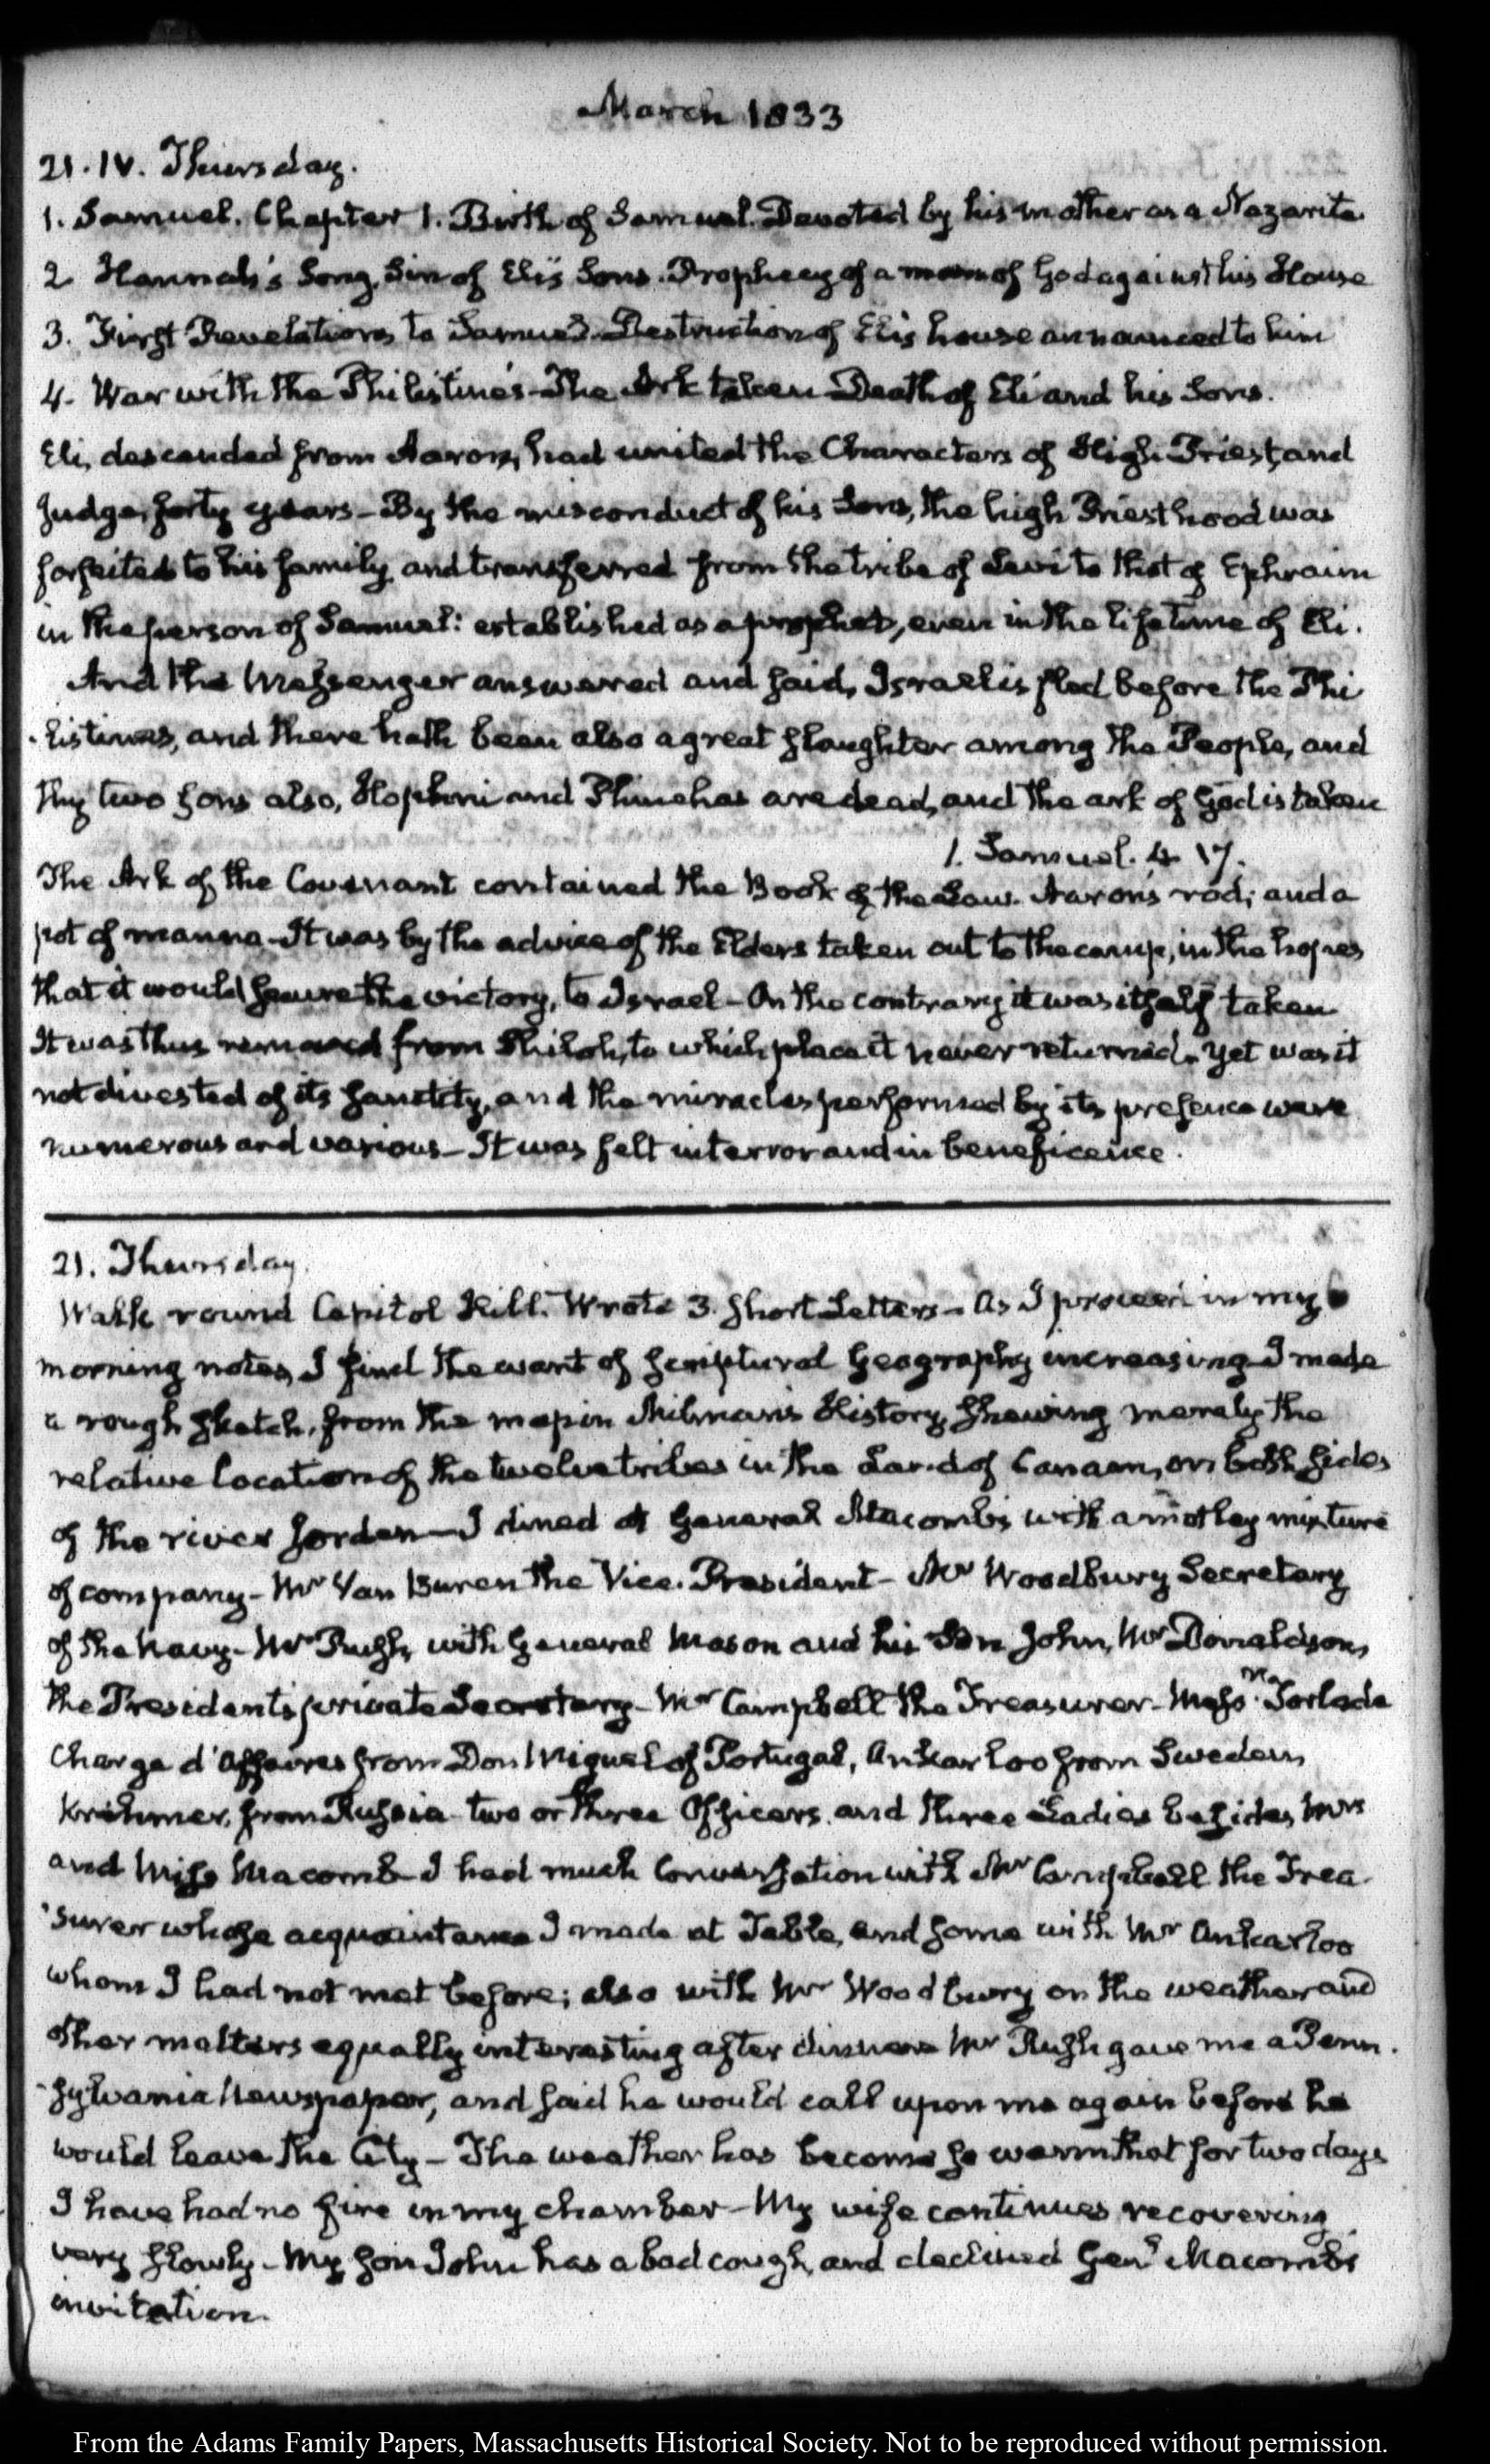 March 1833
21. IV. Thursday.
1. Samuel. Chapter 1. Birth of Samuel. Devoted by his mother as a Nazarite.
2 Hannah's Song, Sin of Eli's Sons. Prophecy of a man of God against his House
3. First Revelations to Samuel. Destruction of Eli's house announced to him
4. War with the Philistines - The Ark taken - Death of Eli and his Sons.
Eli, descended from Aaron, had united the Characters of High Priest, and
Judge, forty years - By the misconduct of his Sons, the high Priesthood was
forfeited to his family, and transferred from the tribe of Levi to that of Ephraim
in the person of Samuel: established as a prophet, even in the lifetime of Eli.
And the Messenger answered and said, Israel is fled before the Phi
-listines, and there hath been also a great slaughter among the People, and
thy two sons also, Hophni and Phinehas are dead, and the ark of God is taken
1. Samuel. 4. 17.
The Ark of the Covenant contained the Book of the Law. Aaron's rod; and a
pot of manna - It was by the advice of the Elders taken out to the camp, in the hopes
that it would secure the victory, to Israel - On the contrary it was itself taken
It was thus removed from Shiloh, to which place it never returned. Yet was it
not divested of its sanctity, and the miracles performed by its presence were
numerous and various - It was felt in terror and in beneficence.
21. Thursday.
Walk round Capitol Hill. Wrote 3. short Letters - As I proceed in my
morning notes, I find the want of scriptural Geography increasing - I made
a rough sketch, from the map in Milman's History, shewing merely the
relative location of the twelve tribes in the Land of Canaan, on both sides
of the river Jordan - I dined at General Macomb's with a motley mixture
of company - Mr Van Buren the Vice. President - Mr Woodbury Secretary
of the Navy - Mr Rush, with General Mason and his Son John, Mr Donaldson,
the President's private Secretary - Mr Campbell the Treasurer - Messrs Torlade
Charge d'Affaires from Don Miguel of Portugal, Ankarloo from Sweden,
Krehmer, from Russia - two or three Officers, and three Ladies besides, Mrs
and Miss Macomb - I had much Conversation with Mr Campbell the Trea
-surer whose acquaintance I made at Table, and some with Mr Ankarloo
whom I had not met before; also with Mr Woodbury on the weather and
other matters equally interesting after dinner Mr Rush gave me a Penn
-sylvania Newspaper, and said he would call upon me again before he
would leave the City - The weather has become so warm that for two days
I have had no fire in my chamber - My wife continues recovering
very slowly - My son John has a bad cough, and declined Genl Macomb's
invitation.
From the Adams Family Papers, Massachusetts Historical Society. Not to be reproduced without permission.